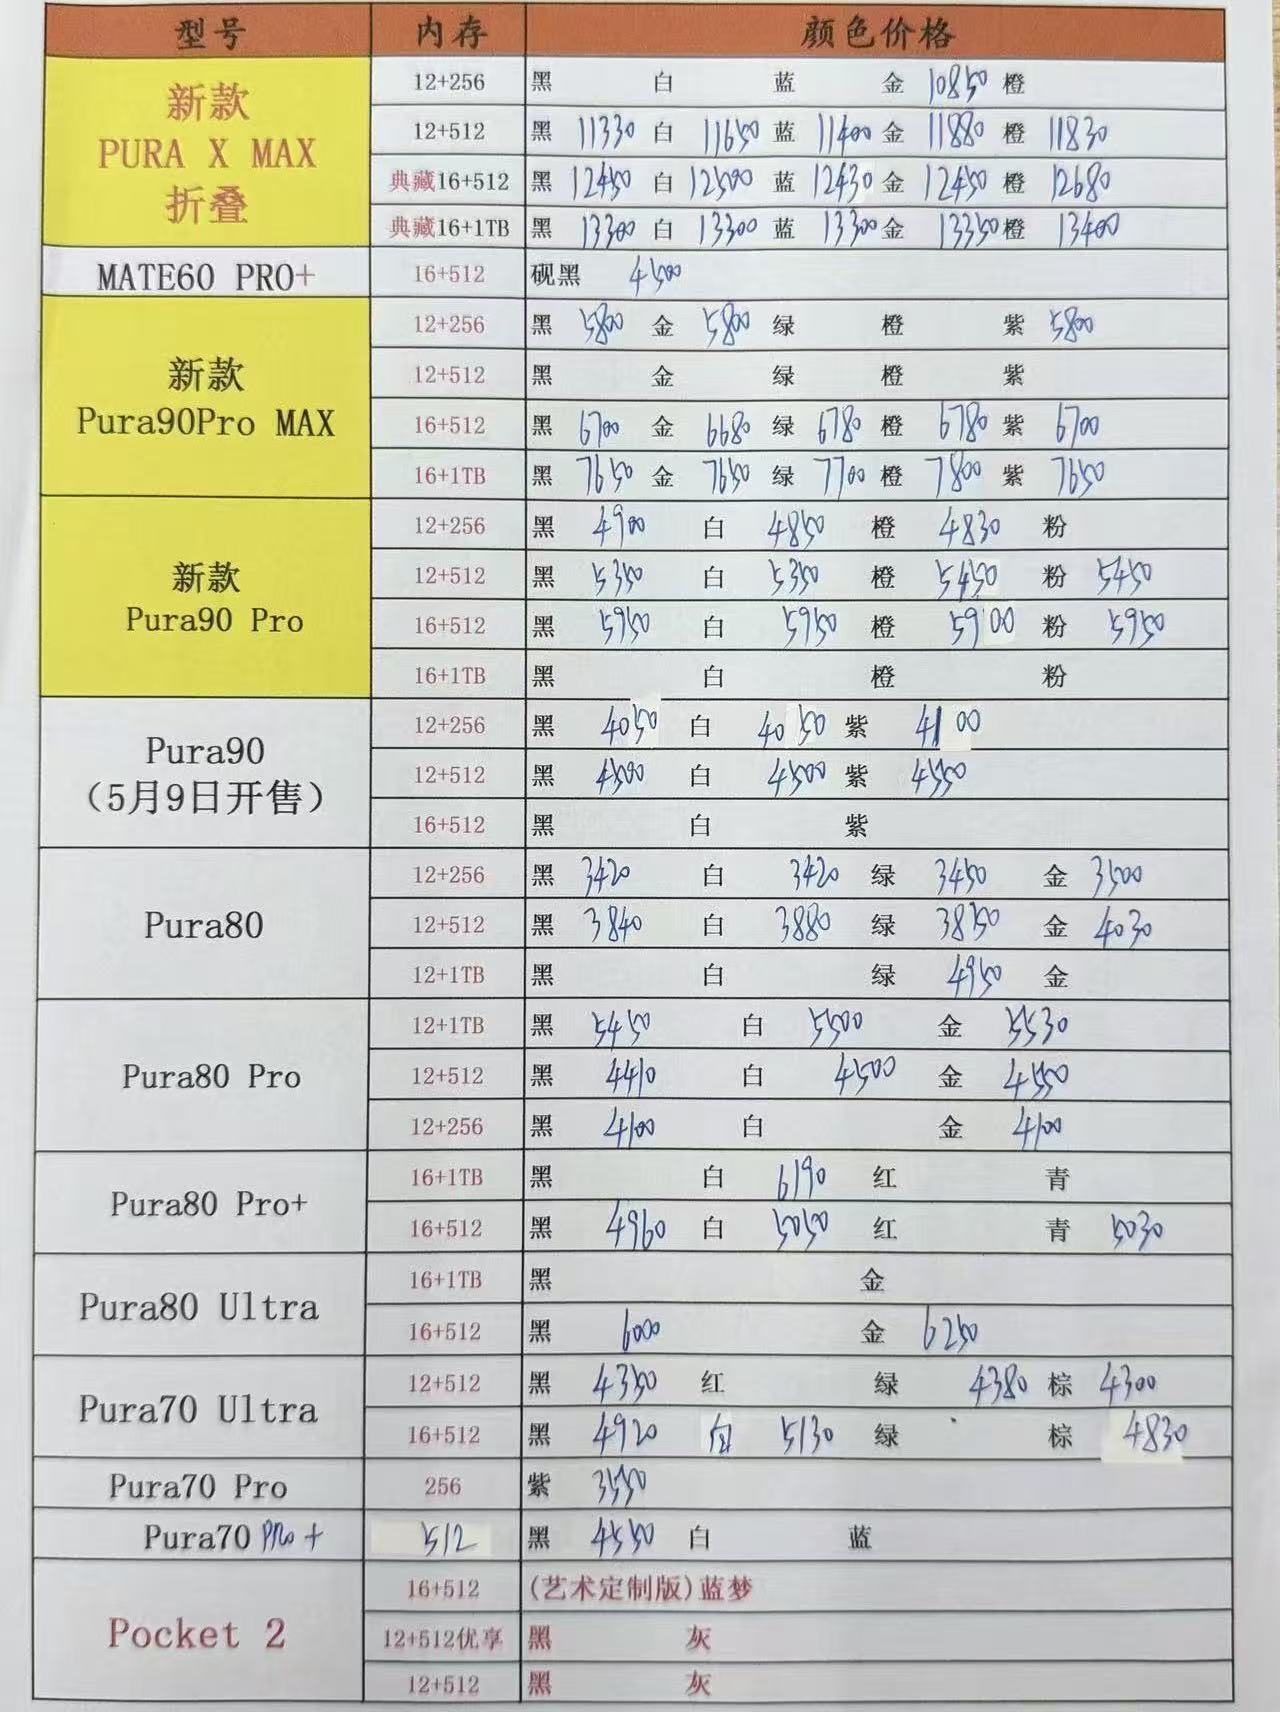 型号 内存 颜色价格
新款 PURA X MAX 折叠
12+256 黑 白 蓝 金 10850 橙
12+512 黑 11330 白 11650 蓝 11400 金 11880 橙 11830
典藏16+512 黑 12450 白 12500 蓝 12430 金 12450 橙 12680
典藏16+1TB 黑 13300 白 13300 蓝 13300 金 13350 橙 13400
MATE60 PRO+ 16+512 砚黑 4500
新款 Pura90Pro MAX
12+256 黑 5800 金 5800 绿 橙 紫 5800
12+512 黑 金 绿 橙 紫
16+512 黑 6700 金 6680 绿 6780 橙 6780 紫 6700
16+1TB 黑 7650 金 7650 绿 7700 橙 7800 紫 7650
新款 Pura90 Pro
12+256 黑 4900 白 4850 橙 4830 粉
12+512 黑 5350 白 5350 橙 5450 粉 5450
16+512 黑 5950 白 5950 橙 5900 粉 5950
16+1TB 黑 白 橙 粉
Pura90 （5月9日开售）
12+256 黑 4050 白 4050 紫 4100
12+512 黑 4500 白 4500 紫 4550
16+512 黑 白 紫
Pura80
12+256 黑 3420 白 3420 绿 3450 金 3500
12+512 黑 3840 白 3880 绿 3850 金 4030
12+1TB 黑 白 绿 4950 金
Pura80 Pro
12+1TB 黑 5450 白 5500 金 5530
12+512 黑 4410 白 4500 金 4550
12+256 黑 4100 白 金 4100
Pura80 Pro+
16+1TB 黑 白 6190 红 青
16+512 黑 4960 白 5050 红 青 5030
Pura80 Ultra
16+1TB 黑 金
16+512 黑 6000 金 6250
Pura70 Ultra
12+512 黑 4350 红 绿 4380 棕 4300
16+512 黑 4920 白 5130 绿 棕 4830
Pura70 Pro 256 紫 3550
Pura70 PRO+ 512 黑 4550 白 蓝
Pocket 2
16+512 (艺术定制版)蓝梦
12+512优享 黑 灰
12+512 黑 灰